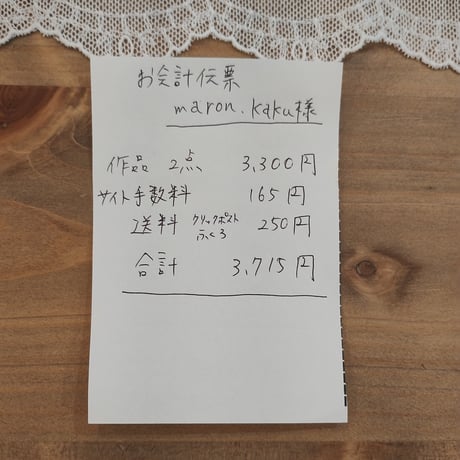 お会計伝票
maron.kaku様
作品 2点 3,300円
サイト手数料 165円
送料 クリックポスト ふくろ 250円
合計 3,715円